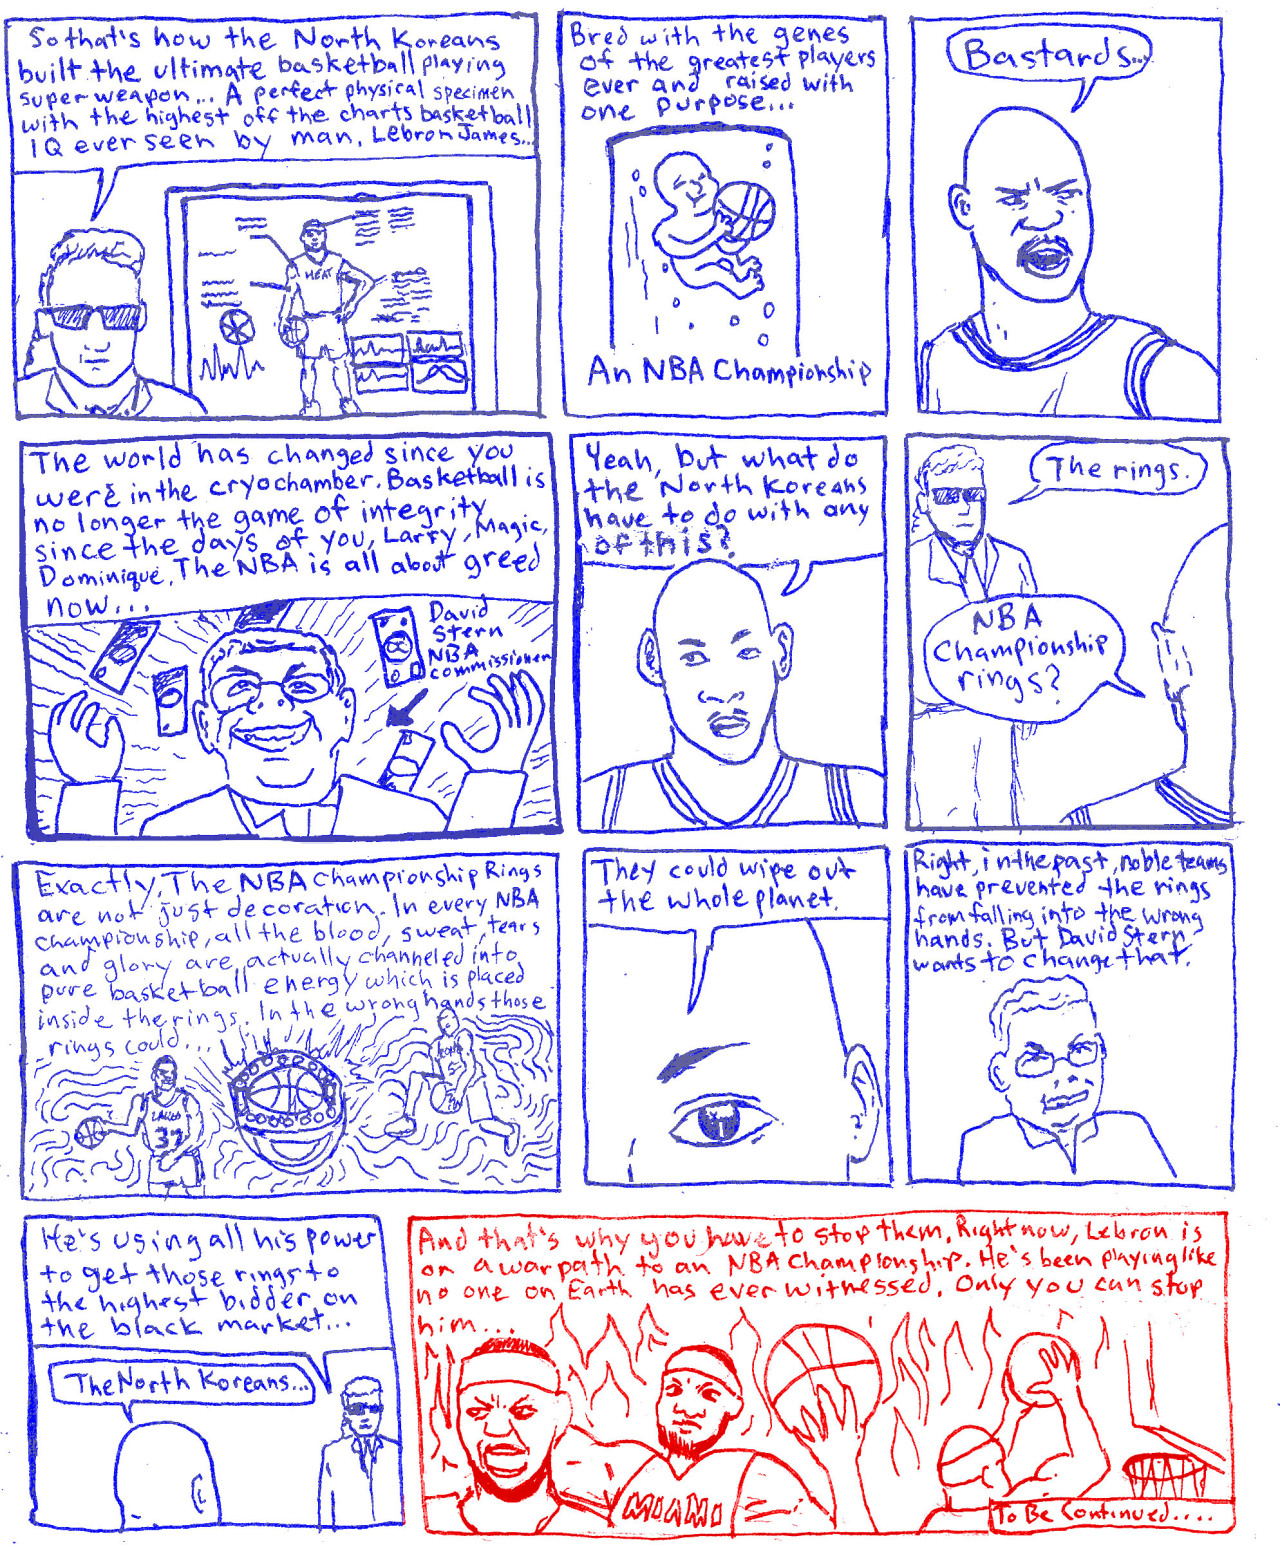 So that's how the North Koreans
built the ultimate basketball playing
super weapon... A perfect physical specimen
with the highest off the charts basketball
IQ ever seen by man, Lebron James...
HEAT
Bred with the genes
of the greatest players
ever and raised with
one purpose...
An NBA Championship
Bastards...
The world has changed since you
were in the cryochamber. Basketball is
no longer the game of integrity
since the days of you, Larry, Magic,
Dominique. The NBA is all about greed
now...
David
Stern
NBA
commissioner
Yeah, but what do
the North Koreans
have to do with any
of this?
The rings.
NBA
Championship
rings?
Exactly, The NBA Championship Rings
are not just decoration. In every NBA
championship, all the blood, sweat, tears
and glory are actually channeled into
pure basketball energy which is placed
inside the rings. In the wrong hands those
rings could...
32
They could wipe out
the whole planet.
Right, in the past, noble teams
have prevented the rings
from falling into the wrong
hands. But David Stern
wants to change that.
He's using all his power
to get those rings to
the highest bidder on
the black market...
The North Koreans...
And that's why you have to stop them. Right now, Lebron is
on a warpath to an NBA Championship. He's been playing like
no one on Earth has ever witnessed. Only you can stop
him...
MIAMI
To Be Continued....